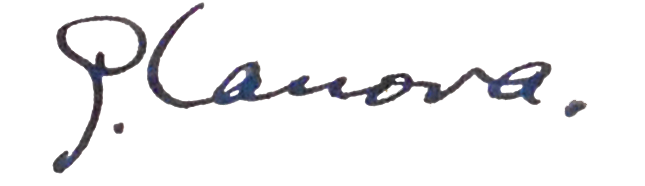 P. Canova.